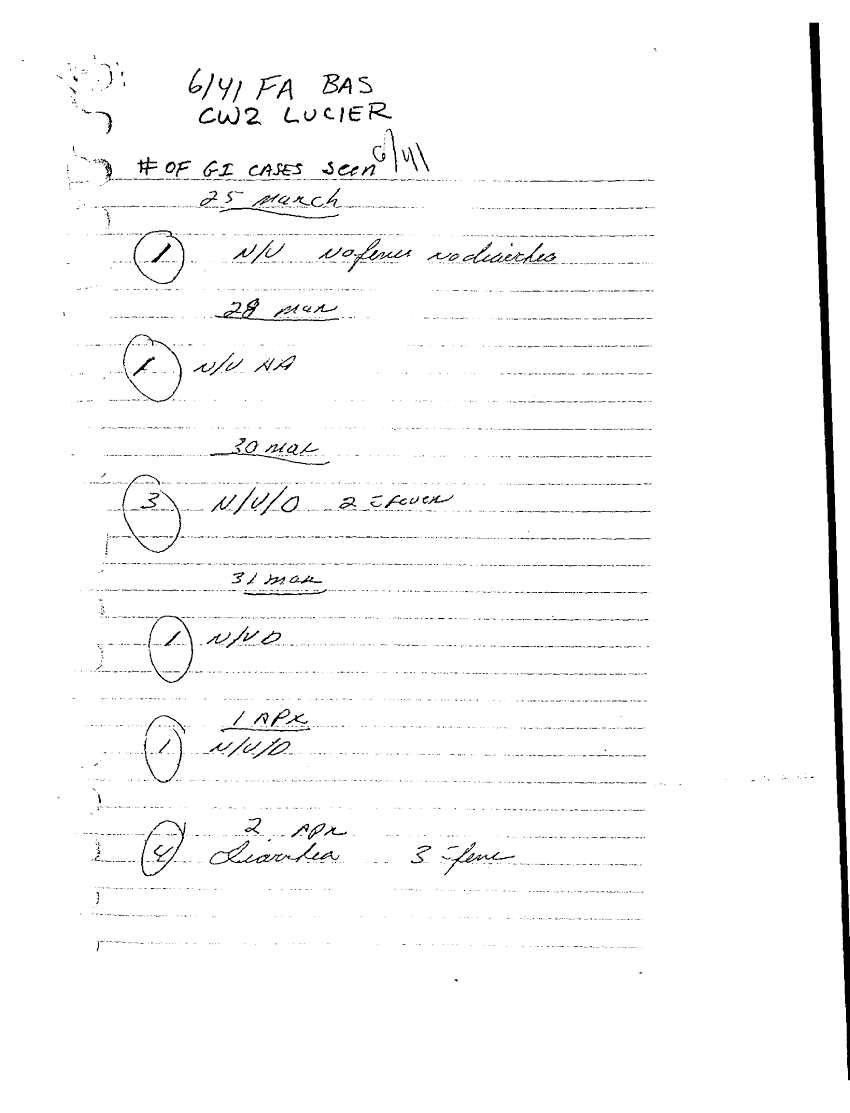 6/41 FA BAS
CW2 LUCIER
# OF GI CASES seen 6/41
25 March
1 N/V No fever no diarrhea
28 mar
1 N/V HA
30 mar
3 N/V/D 2 c̄ fever
31 mar
1 N/V D
1 APR
1 N/V/D
2 APR
4 Diarrhea 3 c̄ feve